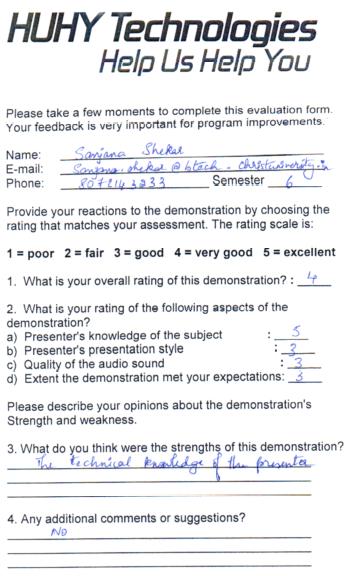 HUHY Technologies
Help Us Help You
Please take a few moments to complete this evaluation form.
Your feedback is very important for program improvements.
Name: Sanjana Shekar
E-mail: Sanjana.shekar@btech.
Phone: Semester 6
Provide your reactions to the demonstration by choosing the
rating that matches your assessment. The rating scale is:
1 = poor 2 = fair 3 = good 4 = very good 5 = excellent
1. What is your overall rating of this demonstration? : 4
2. What is your rating of the following aspects of the
demonstration?
a) Presenter's knowledge of the subject : 5
b) Presenter's presentation style : 3
c) Quality of the audio sound : 3
d) Extent the demonstration met your expectations: 3
Please describe your opinions about the demonstration's
Strength and weakness.
3. What do you think were the strengths of this demonstration?
The technical knowledge of the presenter
4. Any additional comments or suggestions?
NO